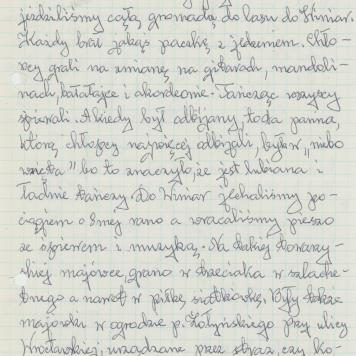 jeździliśmy całą gromadą do lasu do Winiar.
Każdy brał jakąś paczkę z jedzeniem. Chło-
pcy grali na zmianę na gitarach, mandoli-
nach, bałałajce i akordeonie. Tańcząc wszyscy
śpiewali. A kiedy był odbijany, to ta panna,
którą chłopcy najwięcej odbijali, była w „niebo
wzięta" bo to znaczyło, że jest lubiana i
ładnie tańczy. Do Winiar jechaliśmy po-
ciągiem o 8mej rano a wracaliśmy pieszo
ze śpiewem i muzyką. Na takiej towarzy-
skiej majówce, grano w trzeciaka w szlache-
tnego a nawet w piłkę siatkówkę. Były także
majówki w ogrodzie p. przy ulicy
Wrocławskiej urządzane przez straż, czy ko-